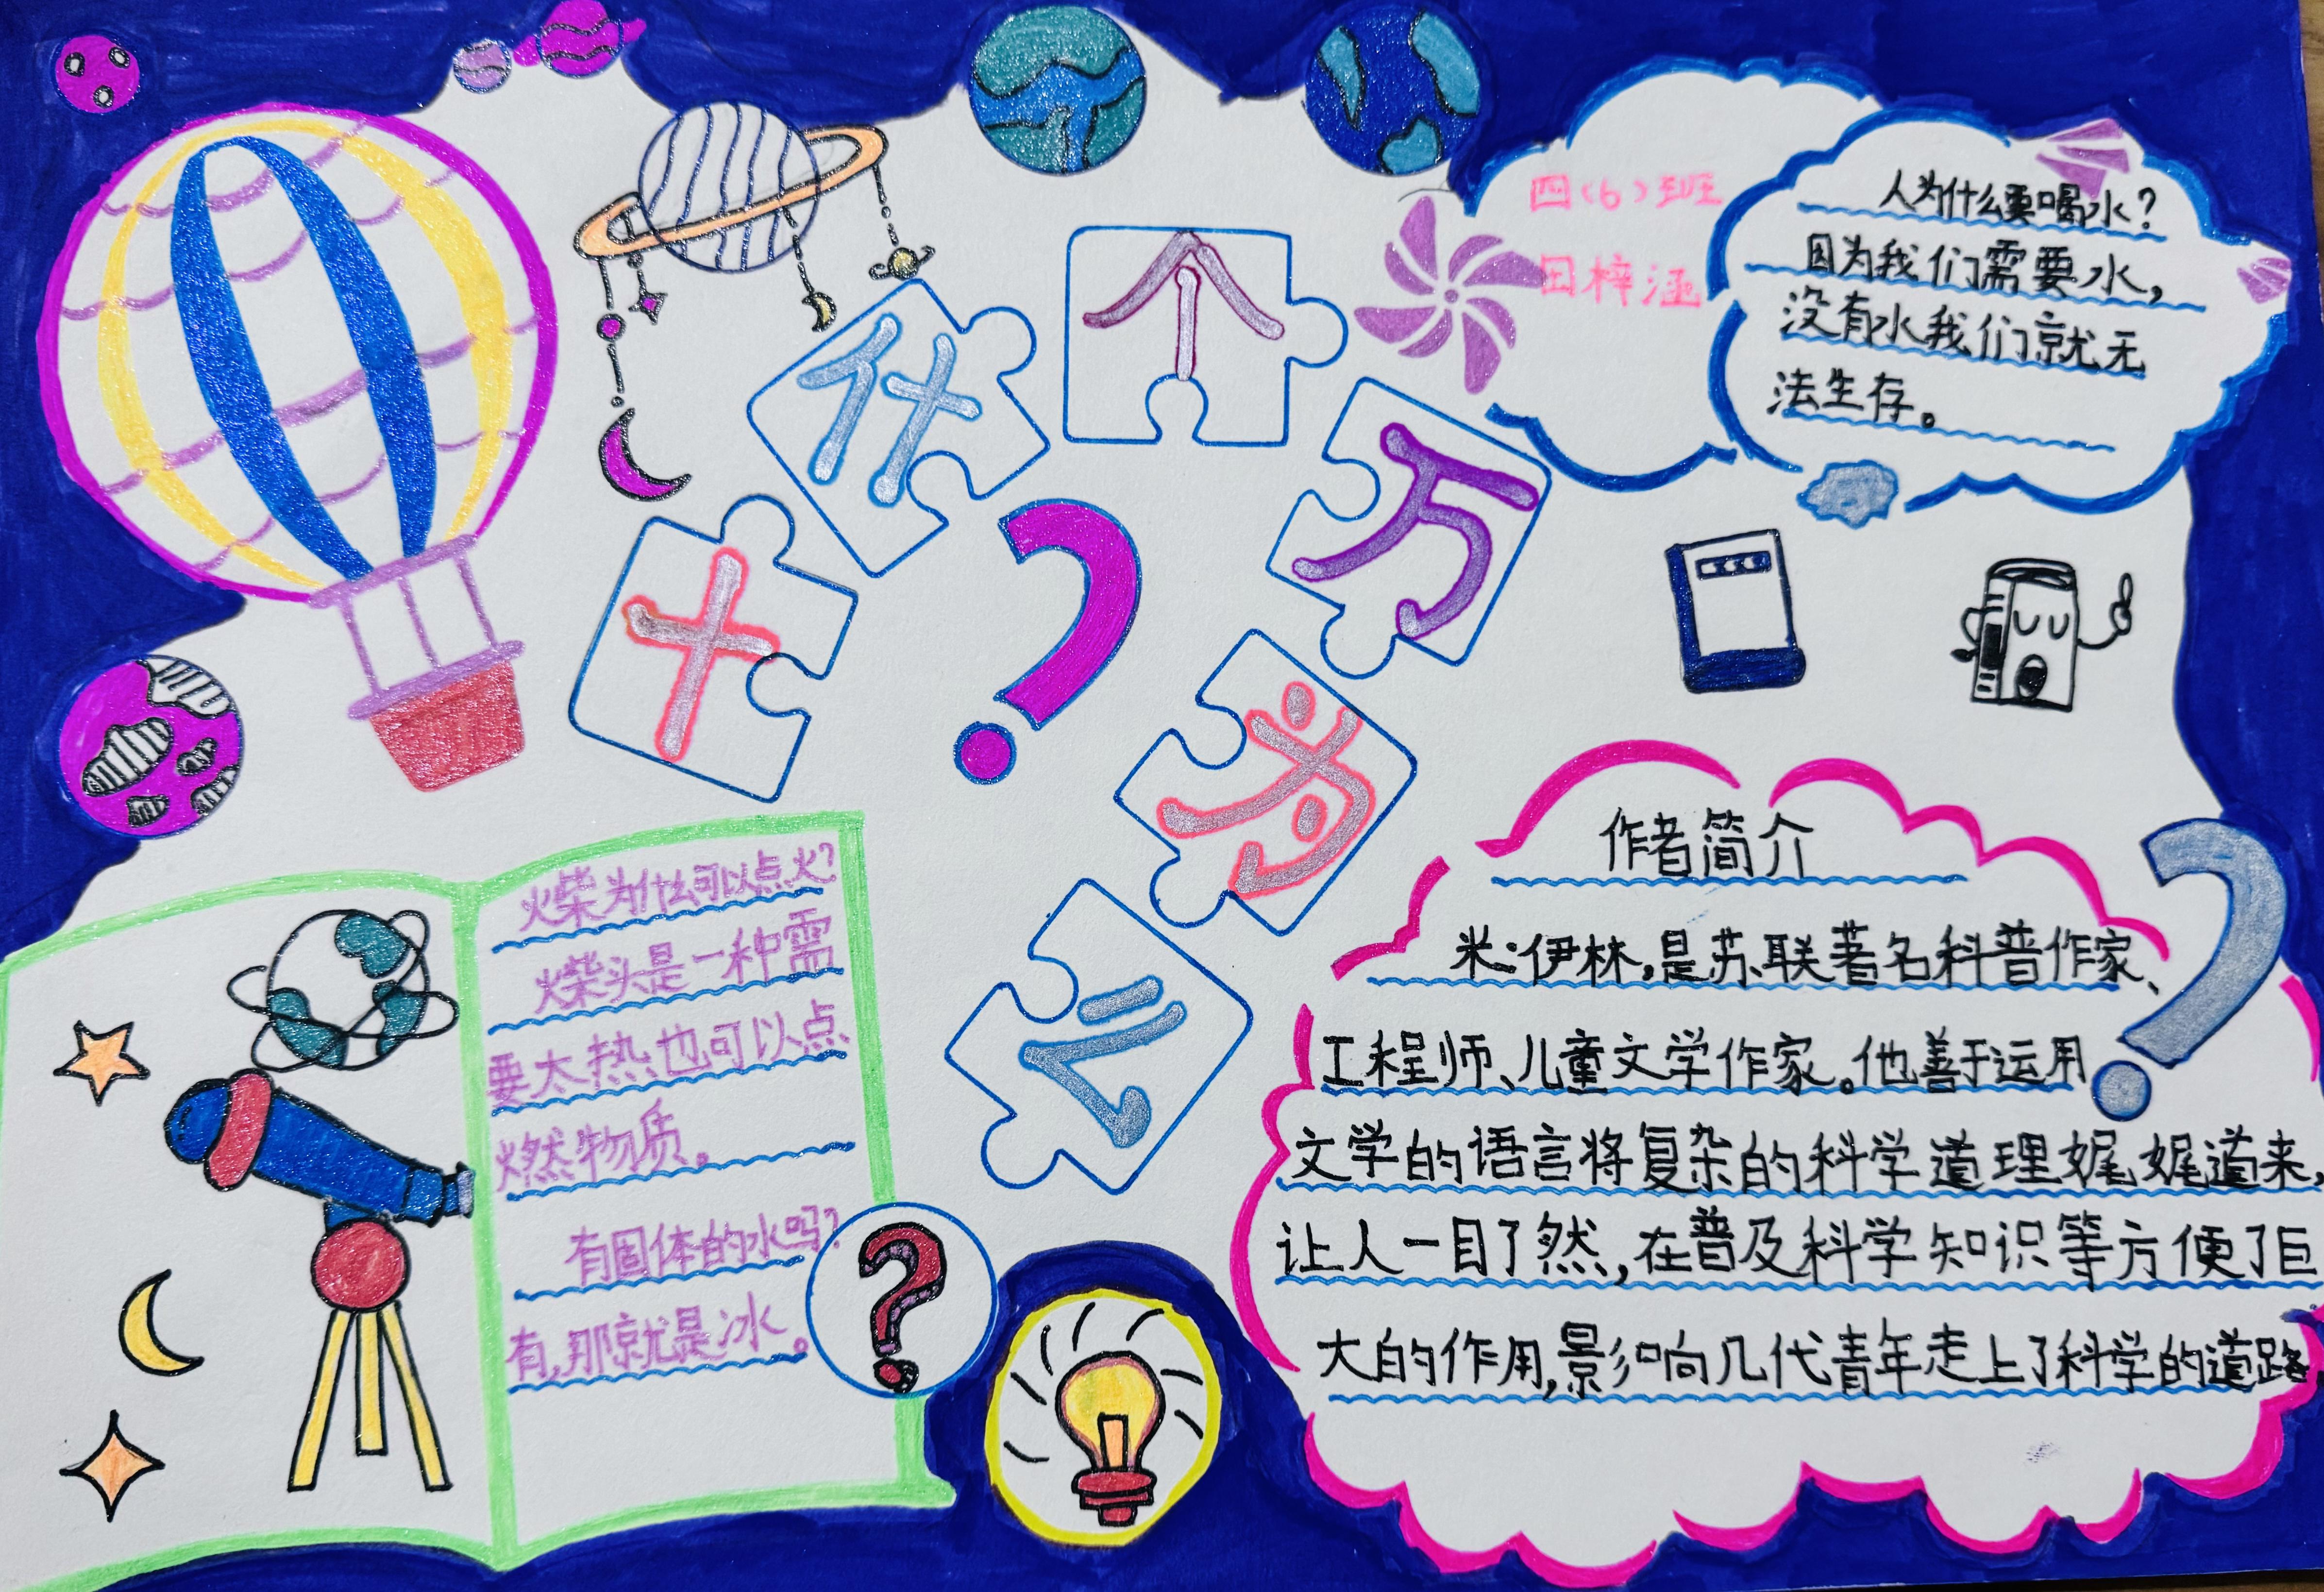 十
什
个
万
为
么
?
四(6)班
田梓涵
人为什么要喝水?
因为我们需要水,
没有水我们就无
法生存。
火柴为什么可以点火?
燃柴头是一种需
要太热也可以点
燃物质。
有固体的水吗?
有,那就是冰。
?
作者简介
米·伊林,是苏联著名科普作家、
工程师、儿童文学作家。他善于运用
文学的语言将复杂的科学道理娓娓道来,
让人一目了然,在普及科学知识等方便了巨
大的作用,影响几代青年走上了科学的道路
?